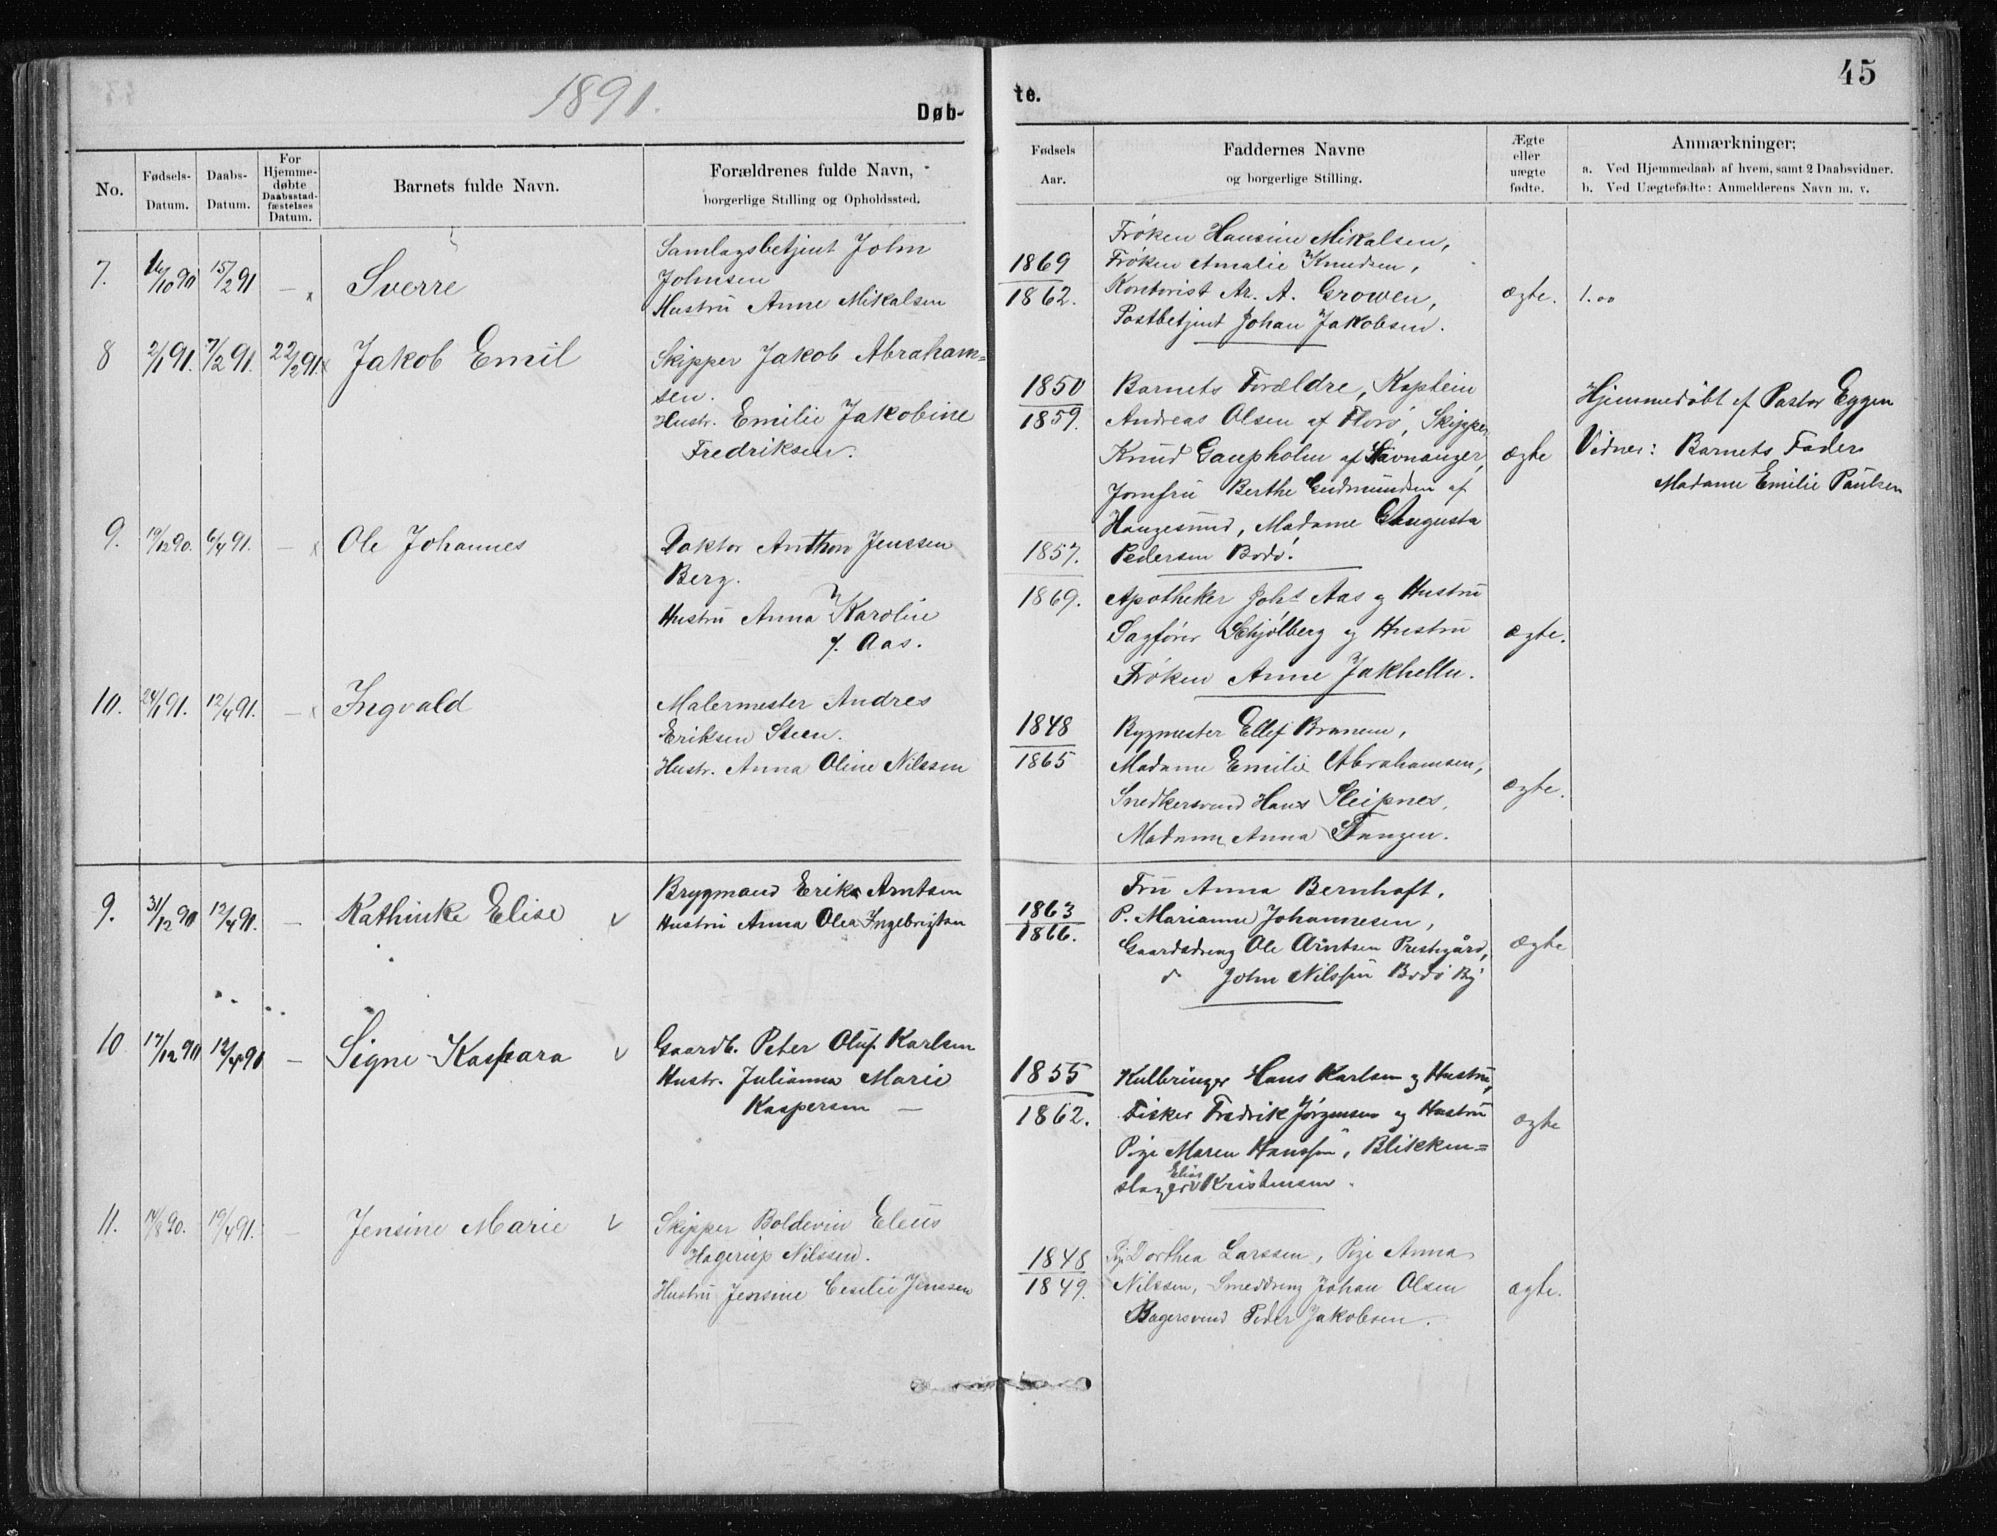 1891.
45
Døb-
te.
No.
Fødsels-
Datum.
Daabs-
Datum.
For
Hjemme-
døbte
Daabsstad-
fæstelses
Datum.
Barnets fulde Navn.
Forældrenes fulde Navn,
borgerlige Stilling og Opholdssted.
Fødsels
Aar.
Faddernes Navne
og borgerlige Stilling.
Ægte
eller
uægte
fødte.
Anmærkninger:
a. Ved Hjemmedaab af hvem, samt 2 Daabsvidner.
b. Ved Uægtefødte: Anmelderens Navn m. v.
7. 15/2 91 — Sverre
Samlagsbetjent John
Johnsen
Hustru Anne Mikalsen
1869
1862.
Frøken Hansine Mikalsen,
Frøken Amalie Knudsen,
Kontorist Ar. A. Growen,
Postbetjent Johan Jakobsen.
ægte. 1.00
8 2/1 91. 7/2 91. 22/2 91. Jakob Emil
Skipper Jakob Abraham=
sen.
Hustr. Emilie Jakobine
Fredriksen.
1850
1859.
Barnets Forældre, Kaptein
Andreas Olsen af Florø, Skipper
Knud Gaupholm af Sævnanger,
Jomfru Berthe Gudmundsen af
Haugesund, Madame Augusta
Pedersen Bodø.
ægte
Hjemmedøbt af Pastor Eggen
Vidner: Barnets Fader
Madame Emilie Paulsen
9. 19/12 90. 6/4 91. — Ole Johannes
Doktor Anthon Jenssen
Berg.
Hustru Anna Karoline
f. Aas.
1857.
1869.
Apotheker Johs Aas og Hustru
Sagfører Schjølberg og Hustru
Frøken Anne Jakhelln.
ægte.
10. 24/1 91. 12/4 91. — Ingvald
Malermester Andres
Eriksen Steen.
Hustr. Anna Oline Nilssen
1848
1865
Bygmester Ellef
Madame Emilie Abrahamsen,
Snedkersvend Hans Sleipnes,
Madame Anna Tangen.
ægte.
9. 31/12 90 12/4 91. — Kathinke Elise
Brygmand Erik Arntsen
Hustru Anna Olea Ingebrigtsen
1863
1866.
Fru Anna Bernhoft.
P. Marianne Johannesen,
Gaardsdreng Ole Arntsen Prestegård,
John Nilssen Bodø By
ægte
10 17/12 90 12/4 90 — Signe Kaspara
Gaardb. Peter Oluf Karlsen
Hustr. Julianna Marie
Kaspersen —
1855
1862.
Kulbringer Hans Karlsen og Hustru,
Fisker Fredrik Jørgensen og Hustru
Pige Maren Hanssen, Blikken=
slager Elias Kristensen.
ægte
11. 14/8 90. 19/4 91. — Jensine Marie
Skipper Boldevin Eleus
Hagerup Nilssen.
Hustru Jensine Cesilie Jenssen
1848
1849.
Pige Dorthea Larssen, Pige Anna
Nilssen, Smeddreng Johan Olsen
Bagersvend Peder Jakobsen.
ægte.